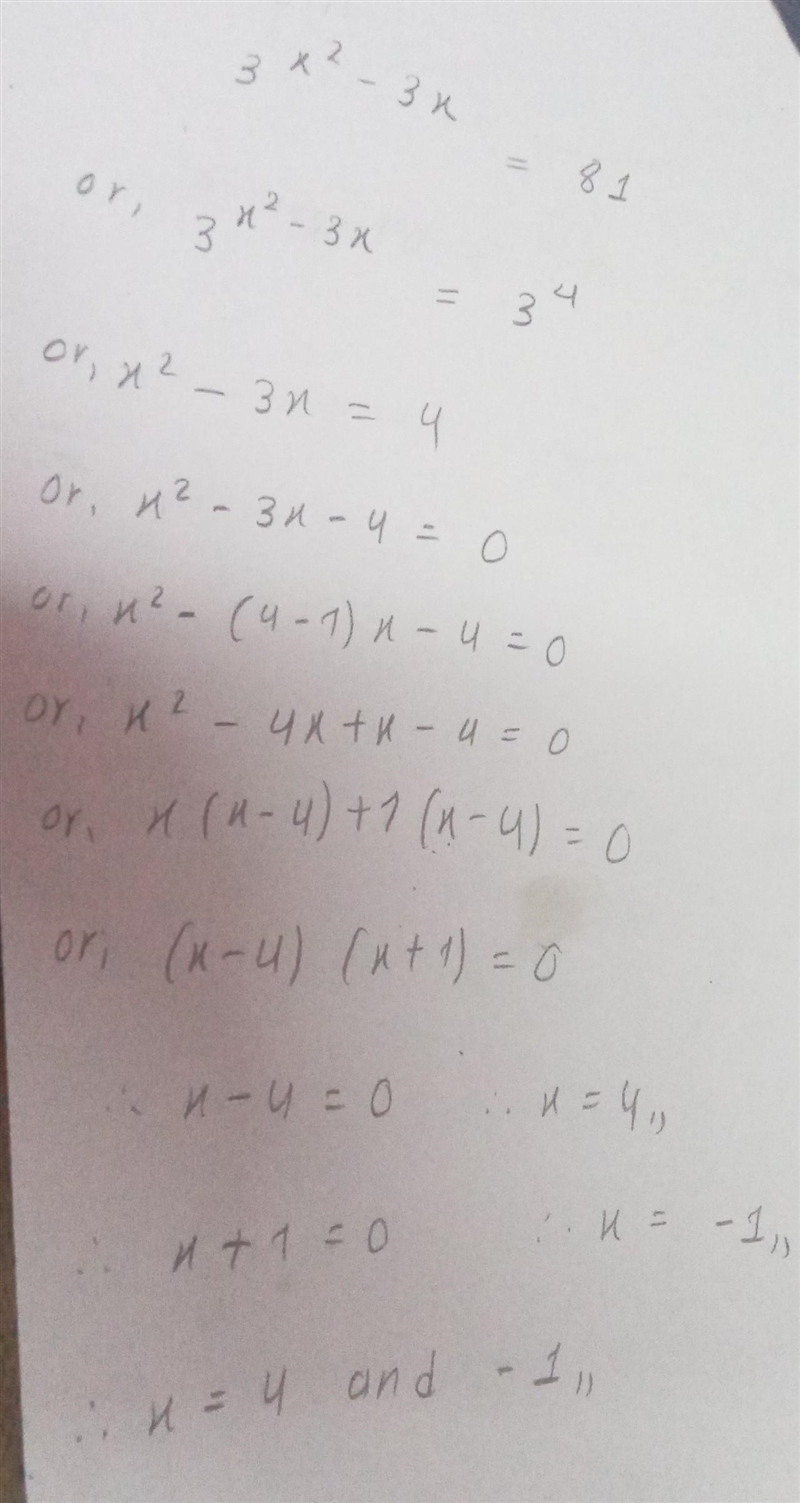 3^{x^2 - 3x} = 81
or, 3^{x^2 - 3x} = 3^4
or, x^2 - 3x = 4
or, x^2 - 3x - 4 = 0
or, x^2 - (4-1)x - 4 = 0
or, x^2 - 4x + x - 4 = 0
or, x(x-4)+1(x-4) = 0
or, (x-4) (x+1) = 0
∴ x - 4 = 0 ∴ x = 4,,
∴ x + 1 = 0 ∴ x = -1,,
∴ x = 4 and -1,,